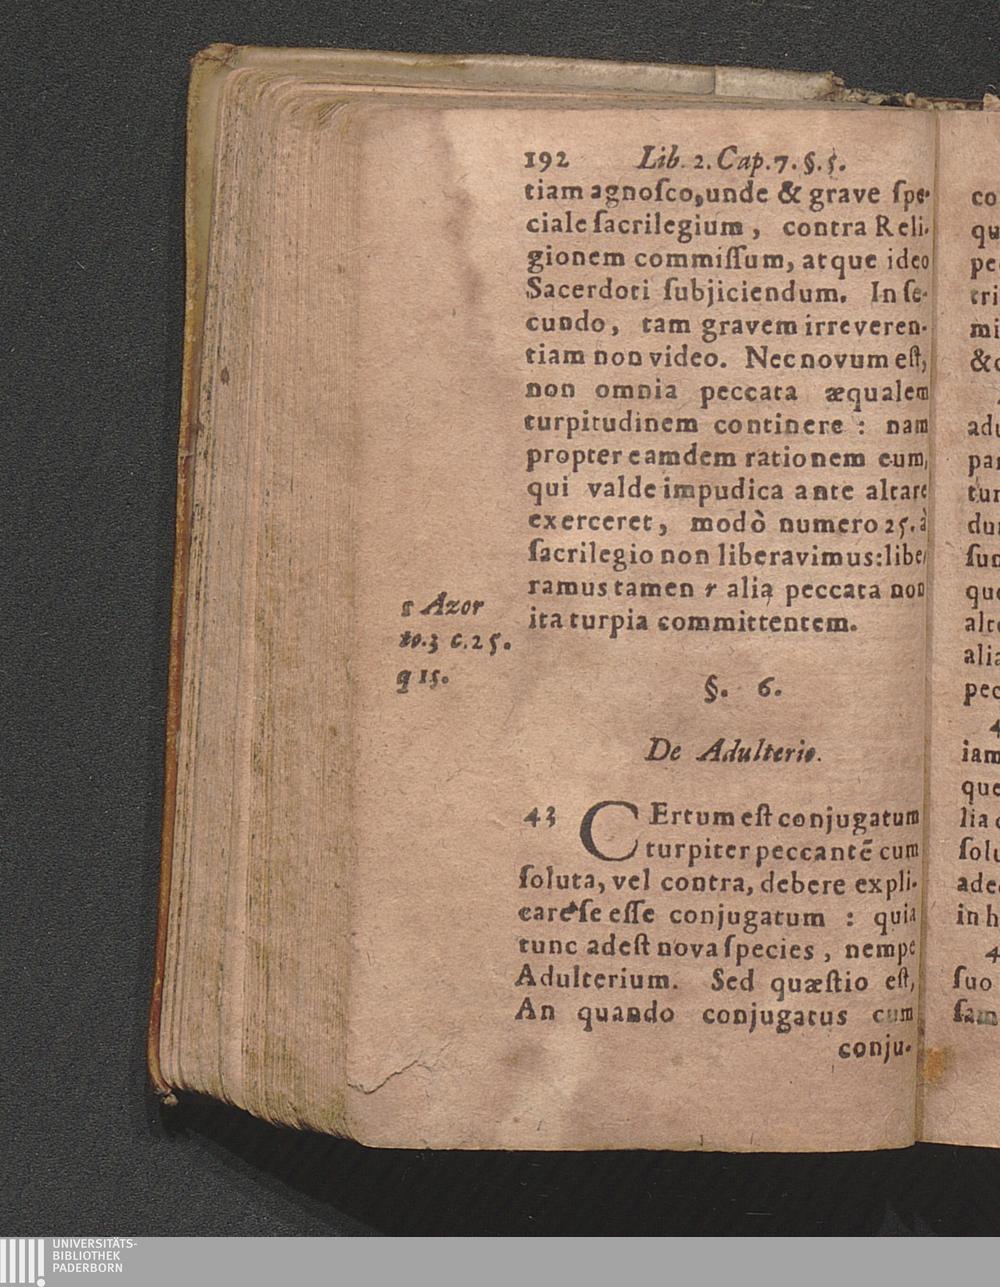 192 Lib. 2. Cap. 7. §. 5.
tiam agnoſco, unde & grave ſpe-
ciale ſacrilegium, contra Reli-
gionem commiſſum, atque ideo
Sacerdoti ſubjiciendum. In ſe-
cundo, tam gravem irreveren-
tiam non video. Nec novum eſt,
non omnia peccata æqualem
turpitudinem continere : nam
propter eamdem rationem eum,
qui valde impudica ante altare
exerceret, modò numero 25. à
ſacrilegio non liberavimus: libe-
ramus tamen r alia peccata non
ita turpia committentem.
r Azor
to. 3 c. 25.
q 15.
§. 6.
De Adulterio.
43 CErtum eſt conjugatum
turpiter peccantē cum
ſoluta, vel contra, debere expli-
care ſe eſſe conjugatum : quia
tunc adeſt nova ſpecies, nempe
Adulterium. Sed quæſtio eſt,
An quando conjugatus cum
conju-
co
qu
pec
tri
mi
&c
adu
par
tur
dun
ſun
que
alte
alia
pec
4
iam
que
lia c
ſolu
adeo
in h
4
ſuo
ſam
UNIVERSITÄTS-
BIBLIOTHEK
PADERBORN